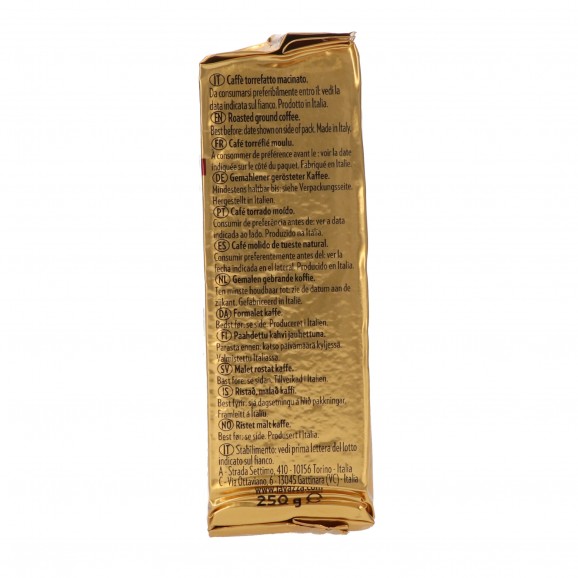 IT Caffè torrefatto macinato.
Da consumarsi preferibilmente entro il: vedi la
data indicata sul fianco. Prodotto in Italia.
EN Roasted ground coffee.
Best before: date shown on side of pack. Made in Italy.
FR Café torréfié moulu.
A consommer de préférence avant le : voir la date
indiquée sur le côté du paquet. Fabriqué en Italie.
DE Gemahlener gerösteter Kaffee.
Mindestens haltbar bis: siehe Verpackungsseite.
Hergestellt in Italien.
PT Café torrado moído.
Consumir de preferência antes de: ver a data
indicada ao lado. Produzido na Itália.
ES Café molido de tueste natural.
Consumir preferentemente antes del: ver la
fecha indicada en el lateral. Producido en Italia.
NL Gemalen gebrande koffie.
Ten minste houdbaar tot: zie de datum aan de
zijkant. Gefabriceerd in Italië.
DA Formalet kaffe.
Bedst før: se side. Produceret i Italien.
FI Paahdettu kahvi jauhettuna.
Parasta ennen: katso päivämäärä kyljessä.
Valmistettu Italiassa.
SV Malet rostat kaffe.
Bäst före: se sidan. Tillverkad i Italien.
IS Ristað, malað kaffi.
Best fyrir: sjá dagsetningu á hlið pakkningar.
Framleitt á Ítalíu
NO Ristet malt kaffe.
Best før: se side. Produsert i Italia.
IT Stabilimento: vedi prima lettera del lotto
indicato sul fianco.
A - Strada Settimo, 410 - 10156 Torino - Italia
C - Via Ottaviano, 6 - 13045 Gattinara (VC) - Italia
www.lavazza.com
250 g e